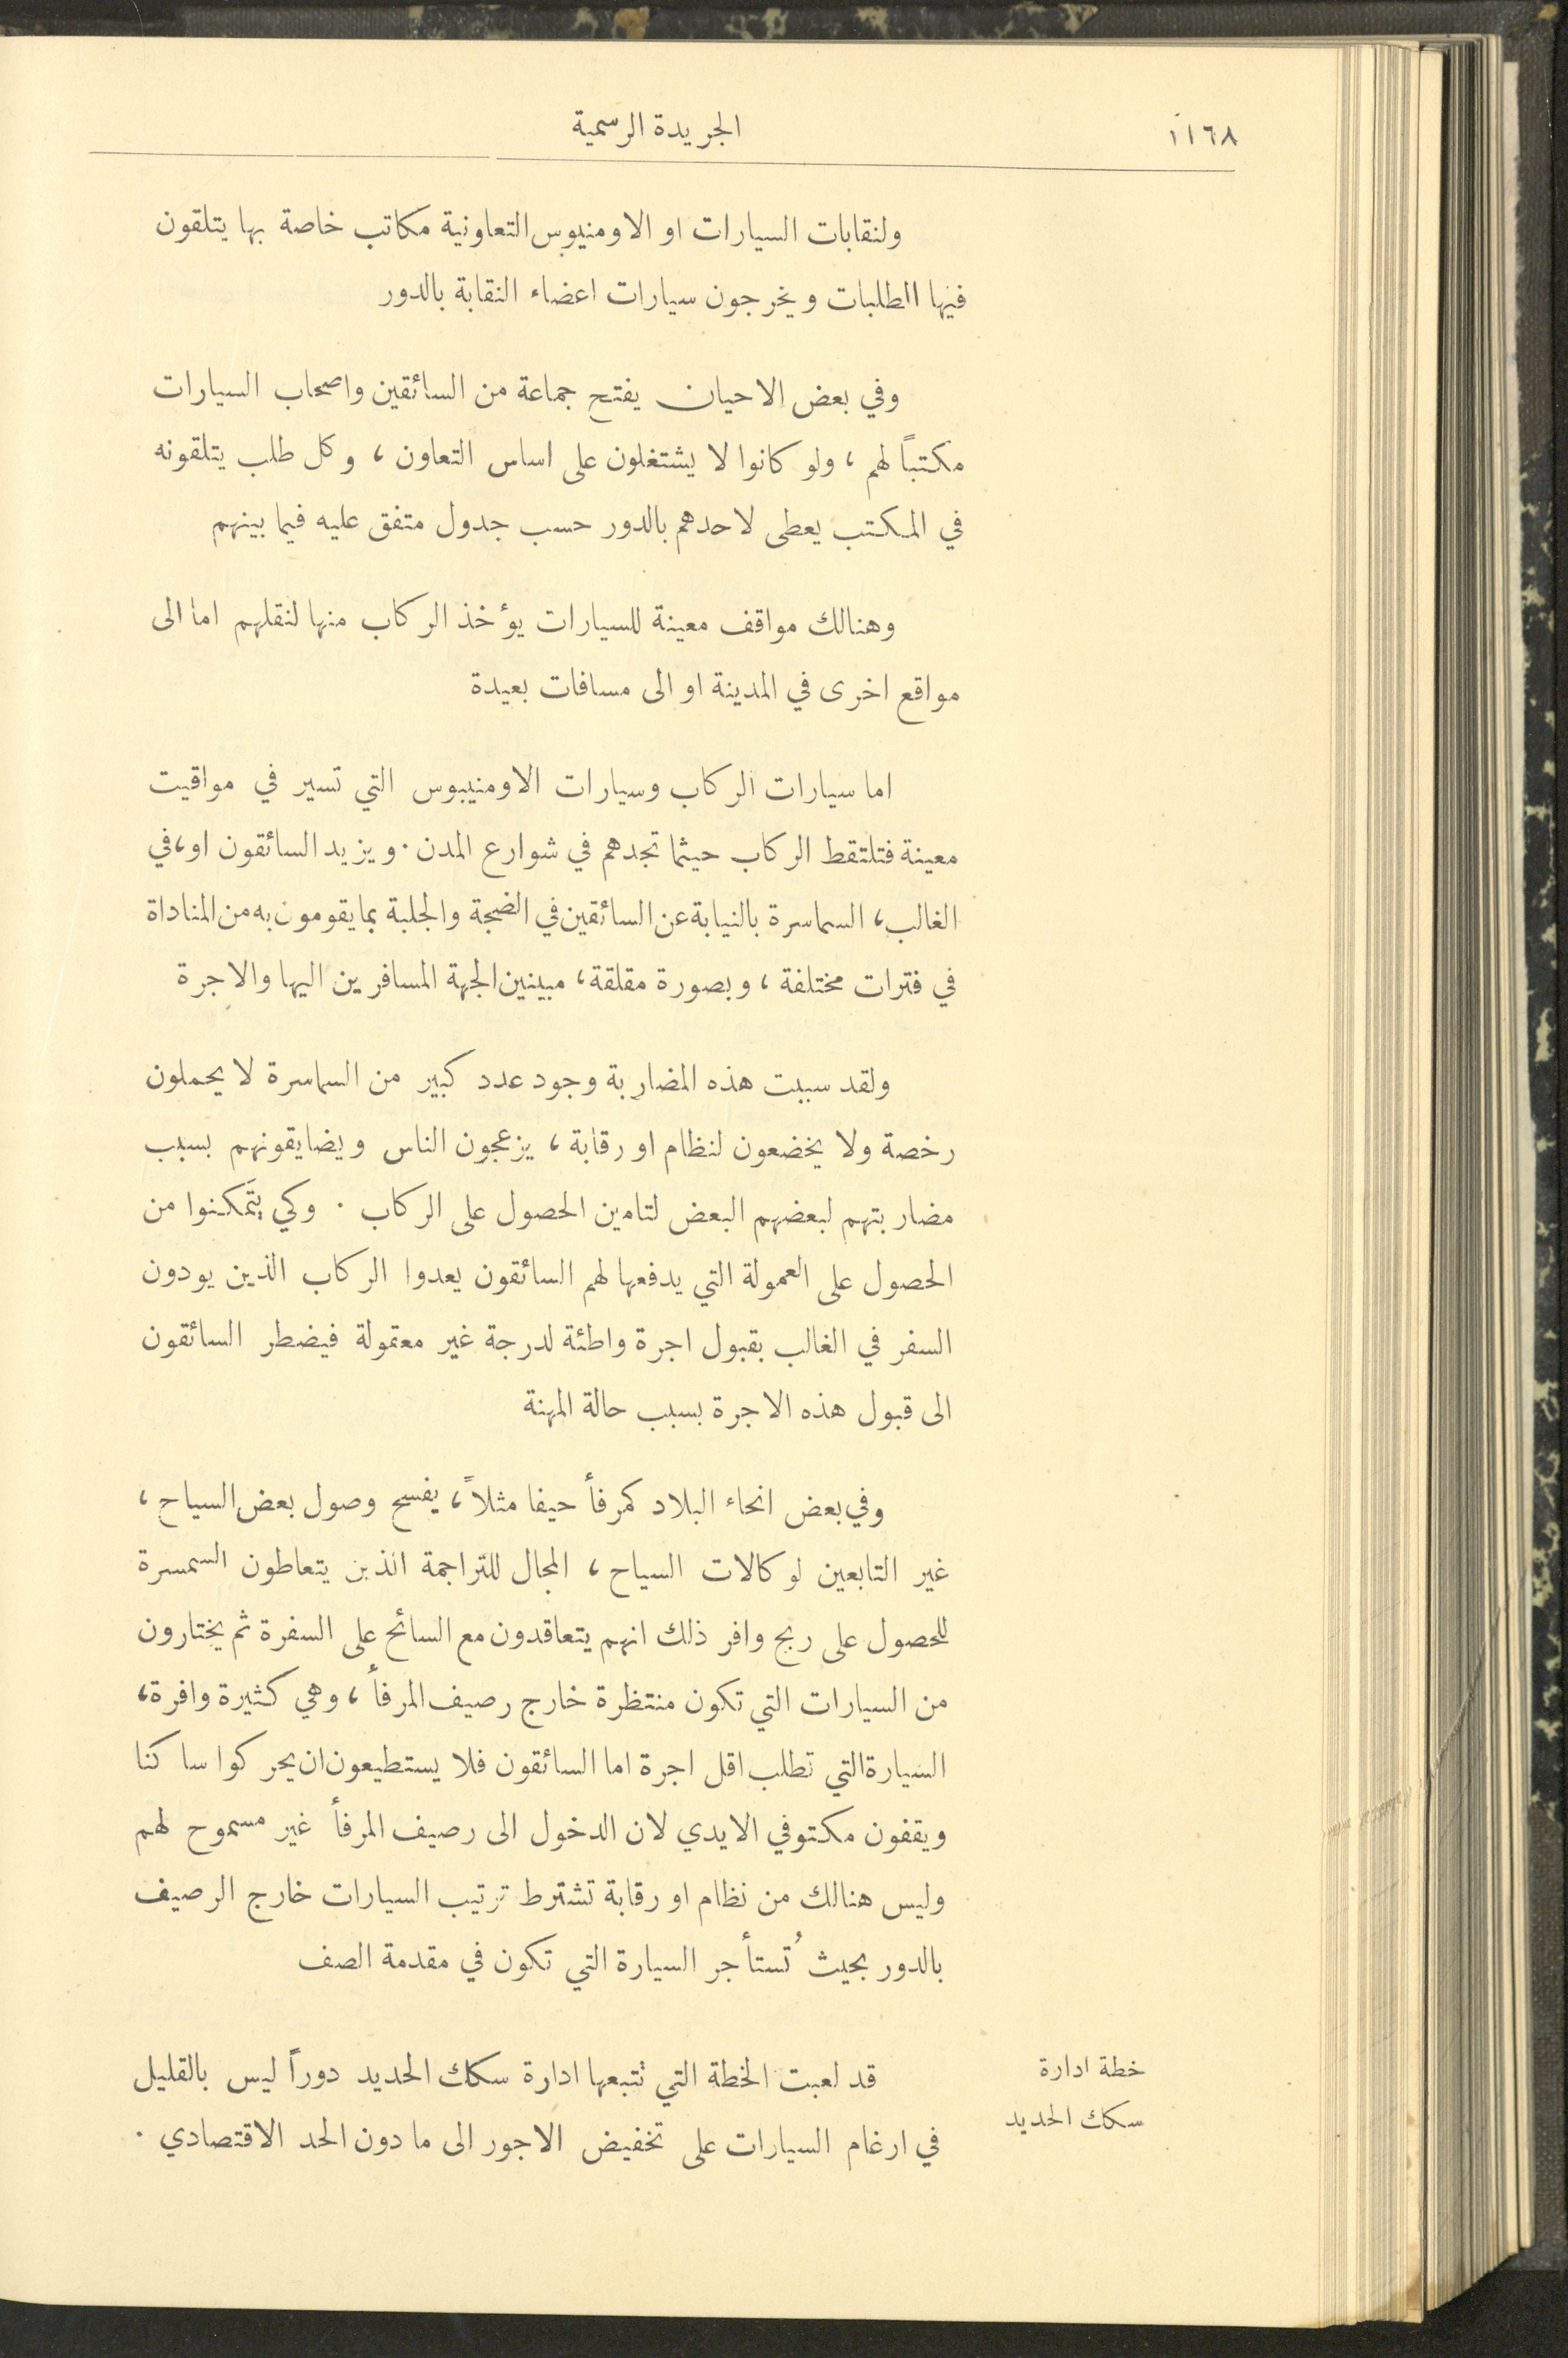 ١١٦٨
الجريدة الرسمية
ولنقابات السيارات او الاومنيبوس التعاونية مكاتب خاصة بها يتلقون
فيها الطلبات ويخرجون سيارات اعضاء النقابة بالدور
وفي بعض الاحيان يفتح جماعة من السائقين واصحاب السيارات
مكتباً لهم، ولو كانوا لا يشتغلون على اساس التعاون، وكل طلب يتلقونه
في المكتب يعطى لاحدهم بالدور حسب جدول متفق عليه فيما بينهم
وهنالك مواقف معينة للسيارات يؤخذ الركاب منها لنقلهم اما الى
مواقع اخرى في المدينة او الى مسافات بعيدة
اما سيارات الركاب وسيارات الاومنيبوس التي تسير في مواقيت
معينة فتلتقط الركاب حيثما تجدهم في شوارع المدن. ويزيد السائقون او، في
الغالب، السماسرة بالنيابة عن السائقين في الضجة والجلبة بما يقومون به من المناداة
في فترات مختلفة، وبصورة مقلقة، مبينين الجهة المسافرين اليها والاجرة
ولقد سببت هذه المضاربة وجود عدد كبير من السماسرة لا يحملون
رخصة ولا يخضعون لنظام او رقابة، يزعجون الناس ويضايقونهم بسبب
مضاربتهم لبعضهم البعض لتامين الحصول على الركاب. وكي يتمكنوا من
الحصول على العمولة التي يدفعها لهم السائقون يعدوا الركاب الذين يودون
السفر في الغالب بقبول اجرة واطئة لدرجة غير معقولة فيضطر السائقون
الى قبول هذه الاجرة بسبب حالة المهنة
وفي بعض انحاء البلاد كمرفأ حيفا مثلاً، يفسح وصول بعض السياح،
غير التابعين لوكالات السياح، المجال للتراجمة الذين يتعاطون السمسرة
للحصول على ربح وافر ذلك انهم يتعاقدون مع السائح على السفرة ثم يختارون
من السيارات التي تكون منتظرة خارج رصيف المرفأ، وهي كثيرة وافرة،
السيارة التي تطلب اقل اجرة اما السائقون فلا يستطيعون ان يحركوا ساكنا
ويقفون مكتوفي الايدي لان الدخول الى رصيف المرفأ غير مسموح لهم
وليس هنالك من نظام او رقابة تشترط ترتيب السيارات خارج الرصيف
بالدور بحيث تُستأجر السيارة التي تكون في مقدمة الصف
خطة ادارة
سكك الحديد
قد لعبت الخطة التي تتبعها ادارة سكك الحديد دوراً ليس بالقليل
في ارغام السيارات على تخفيض الاجور الى ما دون الحد الاقتصادي.